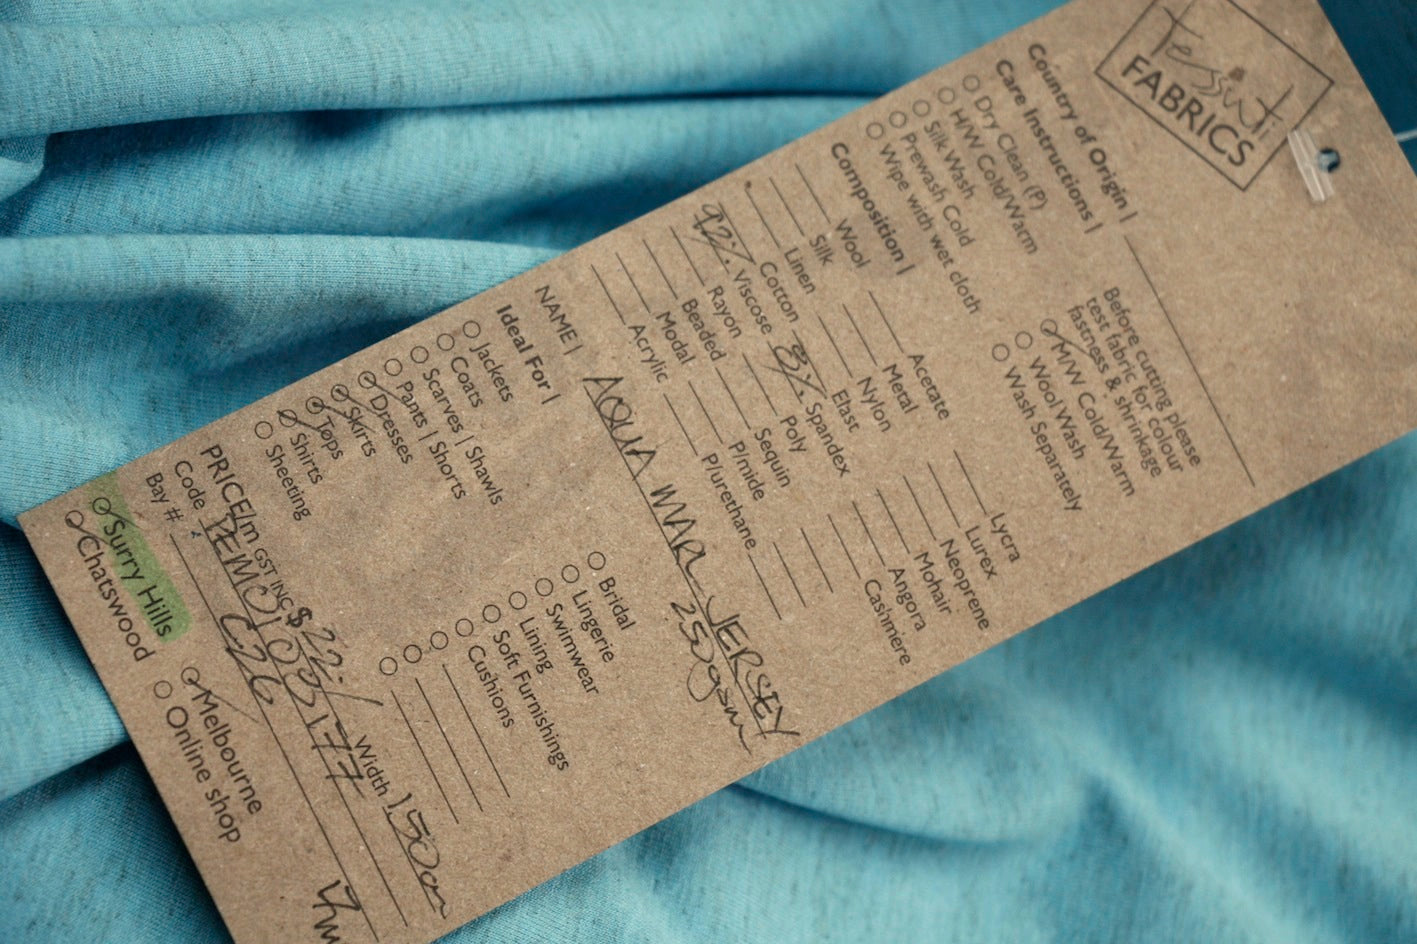 Tessuti
FABRICS
Country of Origin |
Care Instructions |
Dry Clean (P)
H/W Cold/Warm
Silk Wash
Prewash Cold
Wipe with wet cloth
Before cutting please
test fabric for colour
fastness & shrinkage
M/W Cold/Warm
Wool Wash
Wash Separately
Composition |
Wool
Silk
Linen
Cotton
92% Viscose
Rayon
Beaded
Modal
Acrylic
Acetate
Metal
Nylon
Elast
8% Spandex
Poly
Sequin
P/mide
P/urethane
Lycra
Lurex
Neoprene
Mohair
Angora
Cashmere
NAME | AQUA MARL JERSEY
250gsm
Ideal For |
Jackets
Coats
Scarves | Shawls
Pants | Shorts
Dresses
Skirts
Tops
Shirts
Sheeting
Bridal
Lingerie
Swimwear
Lining
Soft Furnishings
Cushions
PRICE/m GST INC $ 22./ Width 150cm
Code
Bay # C26
Surry Hills
Chatswood
Melbourne
Online shop